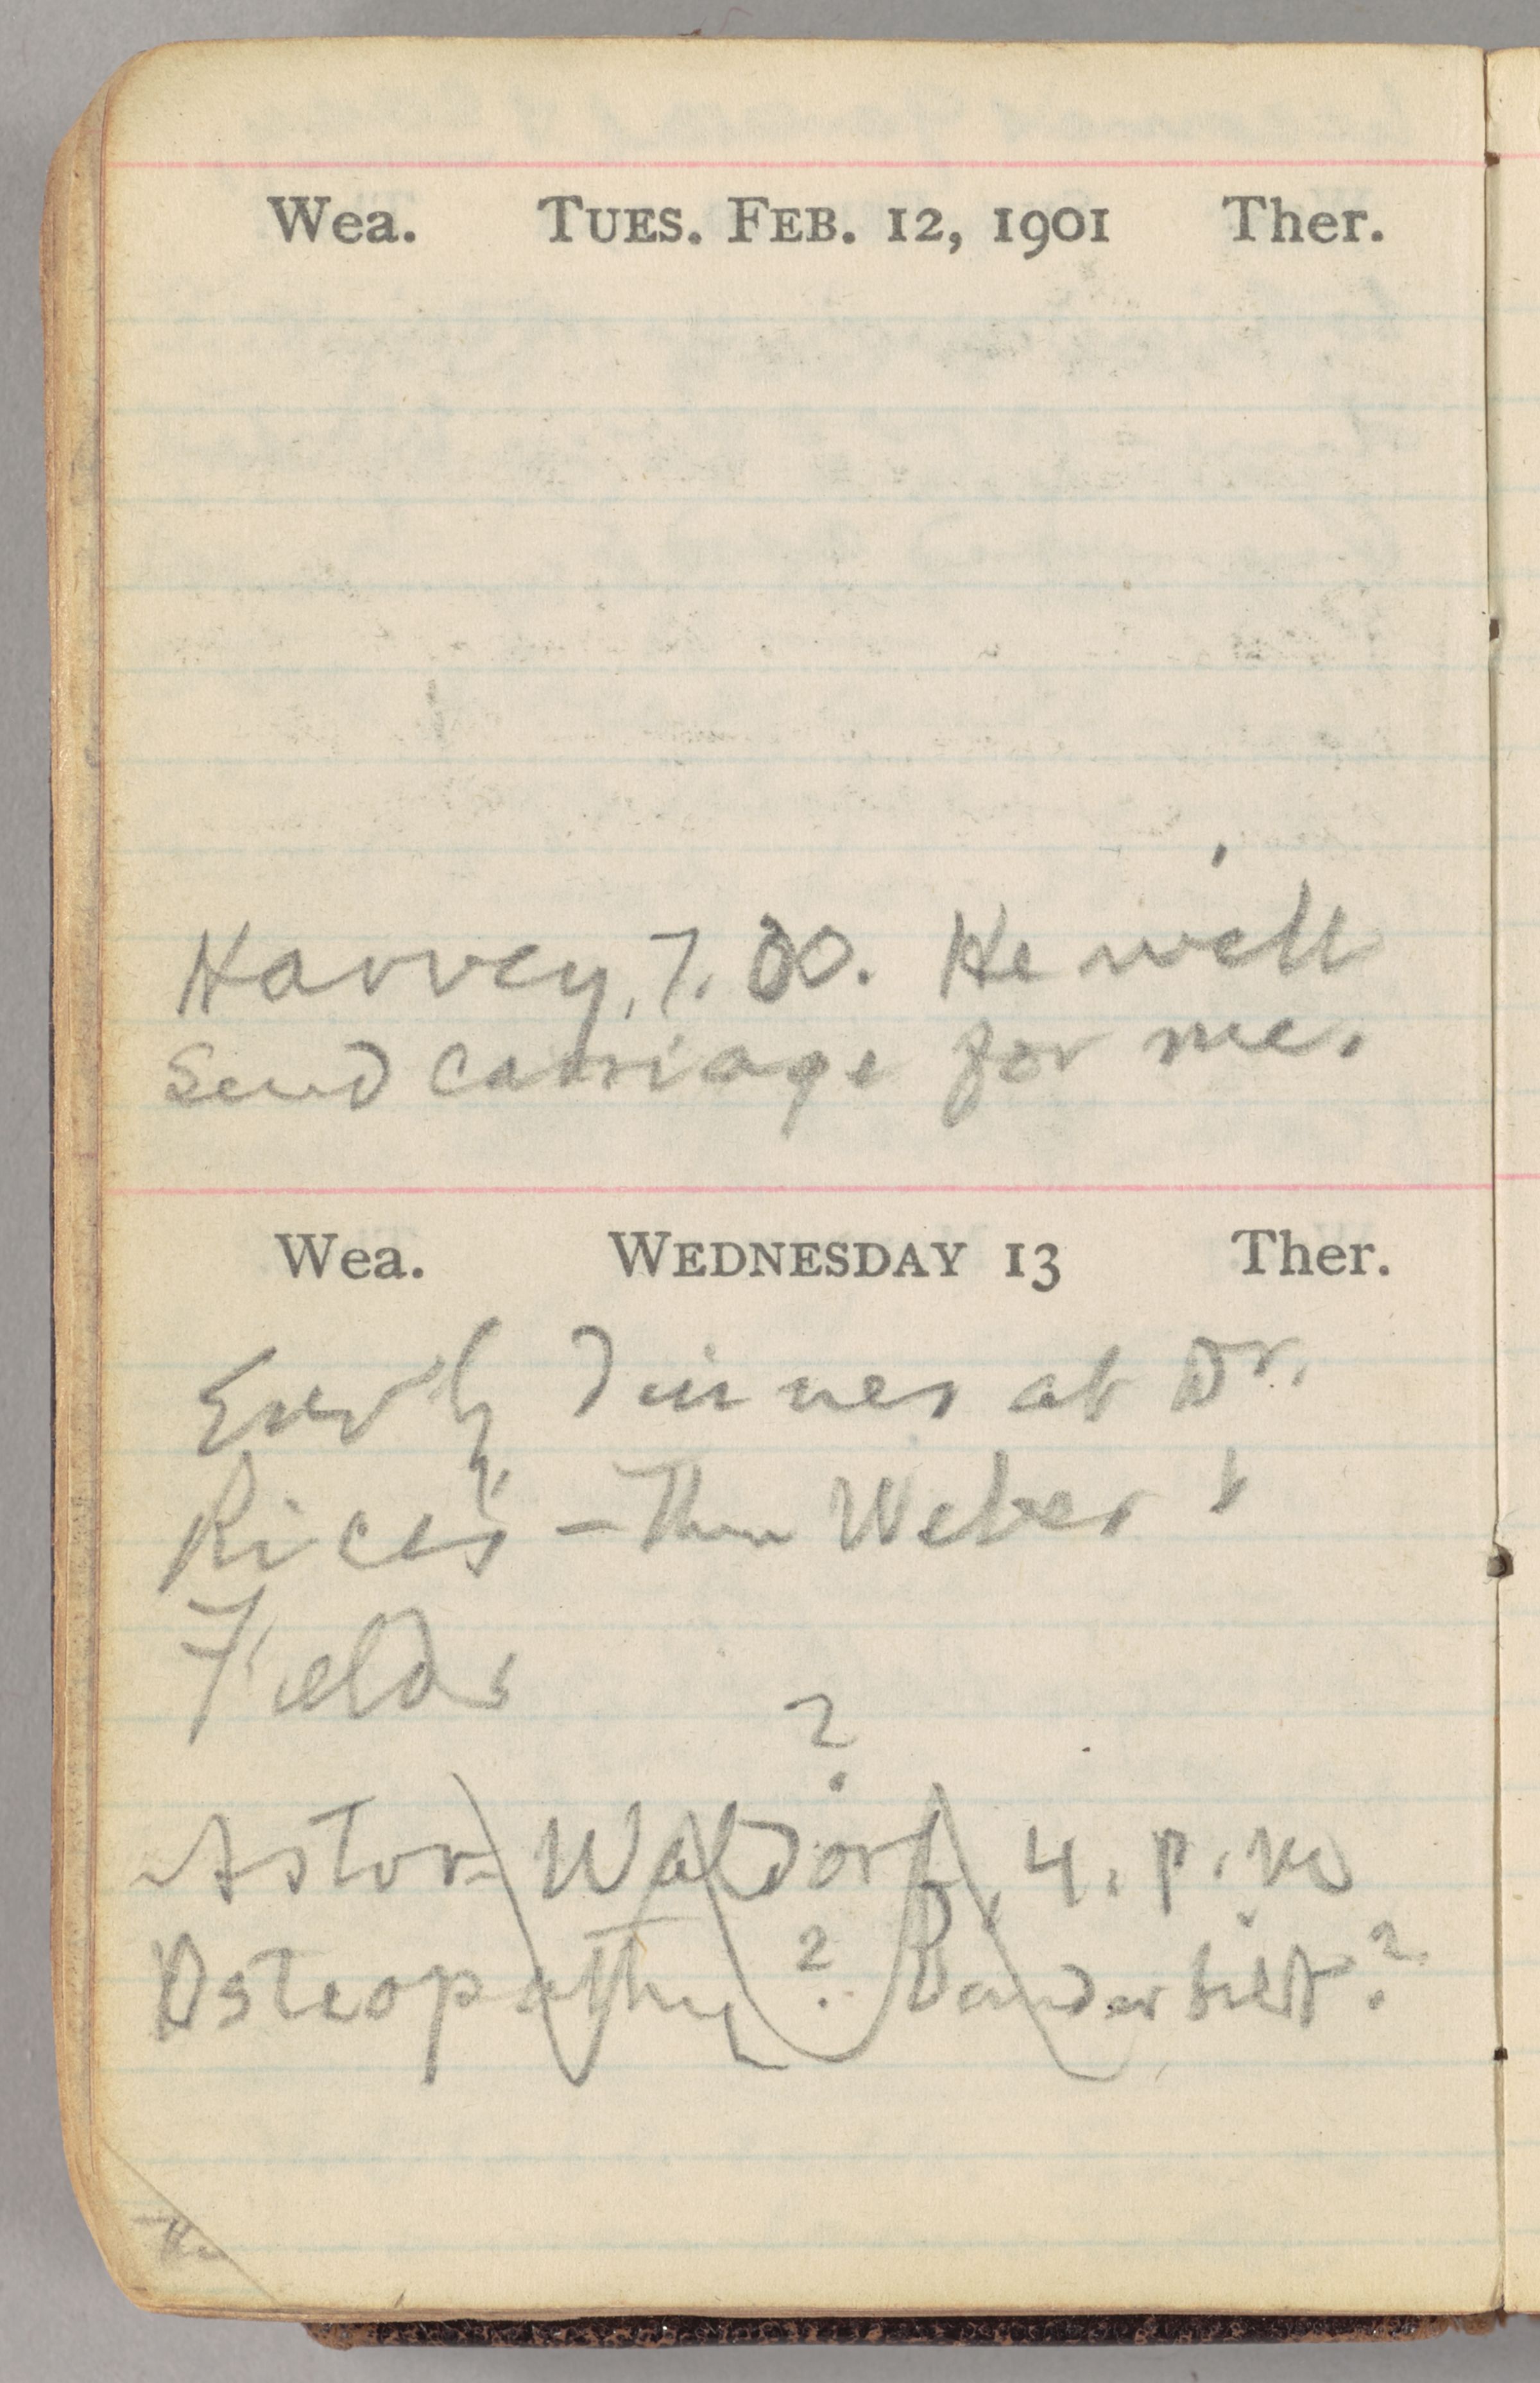 Wea. Tues. Feb. 12, 1901 Ther.
Harvey, 7.00. He will
send carriage for me.
Wea. Wednesday 13 Ther.
Early dinner at Dr.
Rice's – Then Weber &
Fields
?
Astor-Waldorf, 4. p.m
Osteopathy? Vanderbilt?